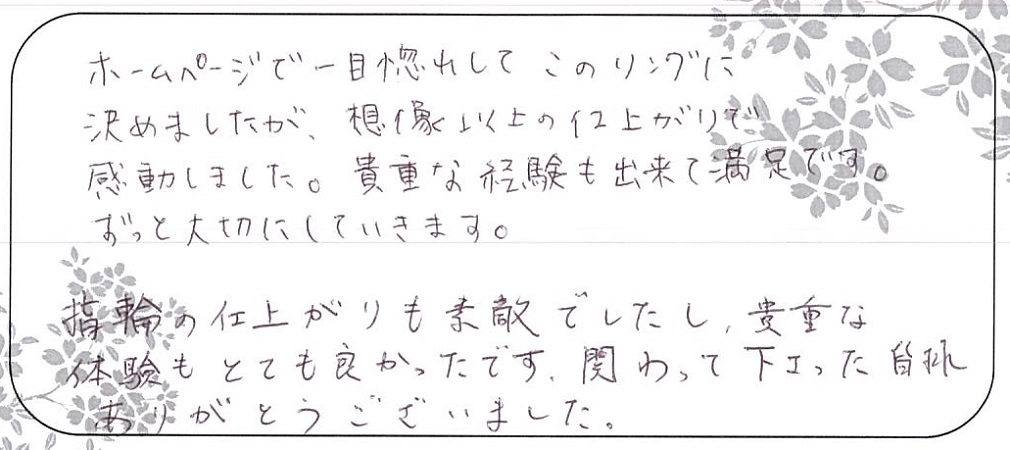 ホームページで一目惚れして このリングに
決めましたが、想像以上の仕上がりで
感動しました。貴重な経験も出来て満足です。
ずっと大切にしていきます。
指輪の仕上がりも素敵でしたし、貴重な
体験もとても良かったです。関わって下さった皆様
ありがとうございました。